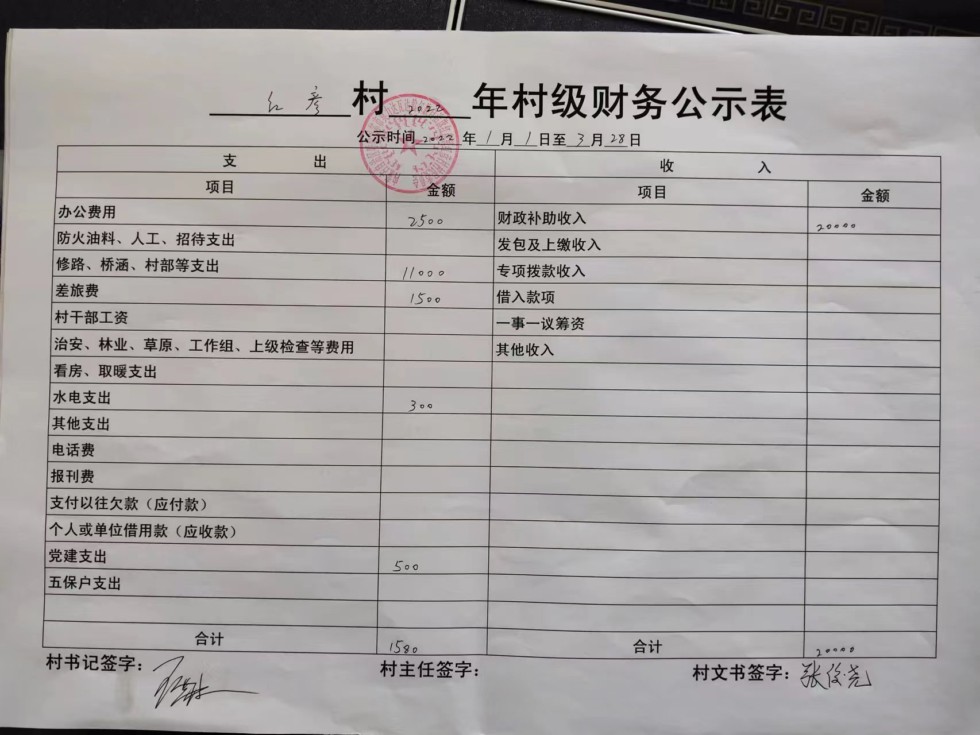 红彦村2022年村级财务公示表
公示时间2022年1月1日至3月28日
支 出 收 入
项目 金额 项目 金额
办公费用 2500 财政补助收入 20000
防火油料、人工、招待支出 发包及上缴收入
修路、桥涵、村部等支出 11000 专项拨款收入
差旅费 1500 借入款项
村干部工资 一事一议筹资
治安、林业、草原、工作组、上级检查等费用 其他收入
看房、取暖支出
水电支出 300
其他支出
电话费
报刊费
支付以往欠款（应付款）
个人或单位借用款（应收款）
党建支出 500
五保户支出
合计 1580 合计 20000
村书记签字： 村主任签字： 村文书签字：张俊尧